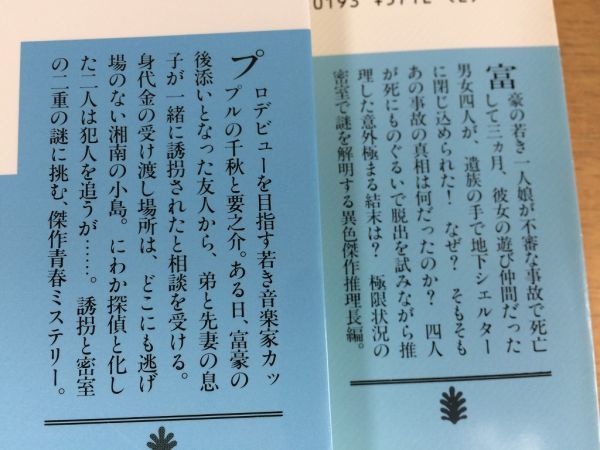 0193 ¥571E (2)
富豪の若き一人娘が不審な事故で死亡
して三ヵ月、彼女の遊び仲間だった
男女四人が、遺族の手で地下シェルター
に閉じ込められた！　なぜ？　そもそも
あの事故の真相は何だったのか？　四人
が死にものぐるいで脱出を試みながら推
理した意外極まる結末は？　極限状況の
密室で謎を解明する異色傑作推理長編。
プロデビューを目指す若き音楽家カッ
プルの千秋と要之介。ある日、富豪の
後添いとなった友人から、弟と先妻の息
子が一緒に誘拐されたと相談を受ける。
身代金の受け渡し場所は、どこにも逃げ
場のない湘南の小島。にわか探偵と化し
た二人は犯人を追うが……。誘拐と密室
の二重の謎に挑む、傑作青春ミステリー。